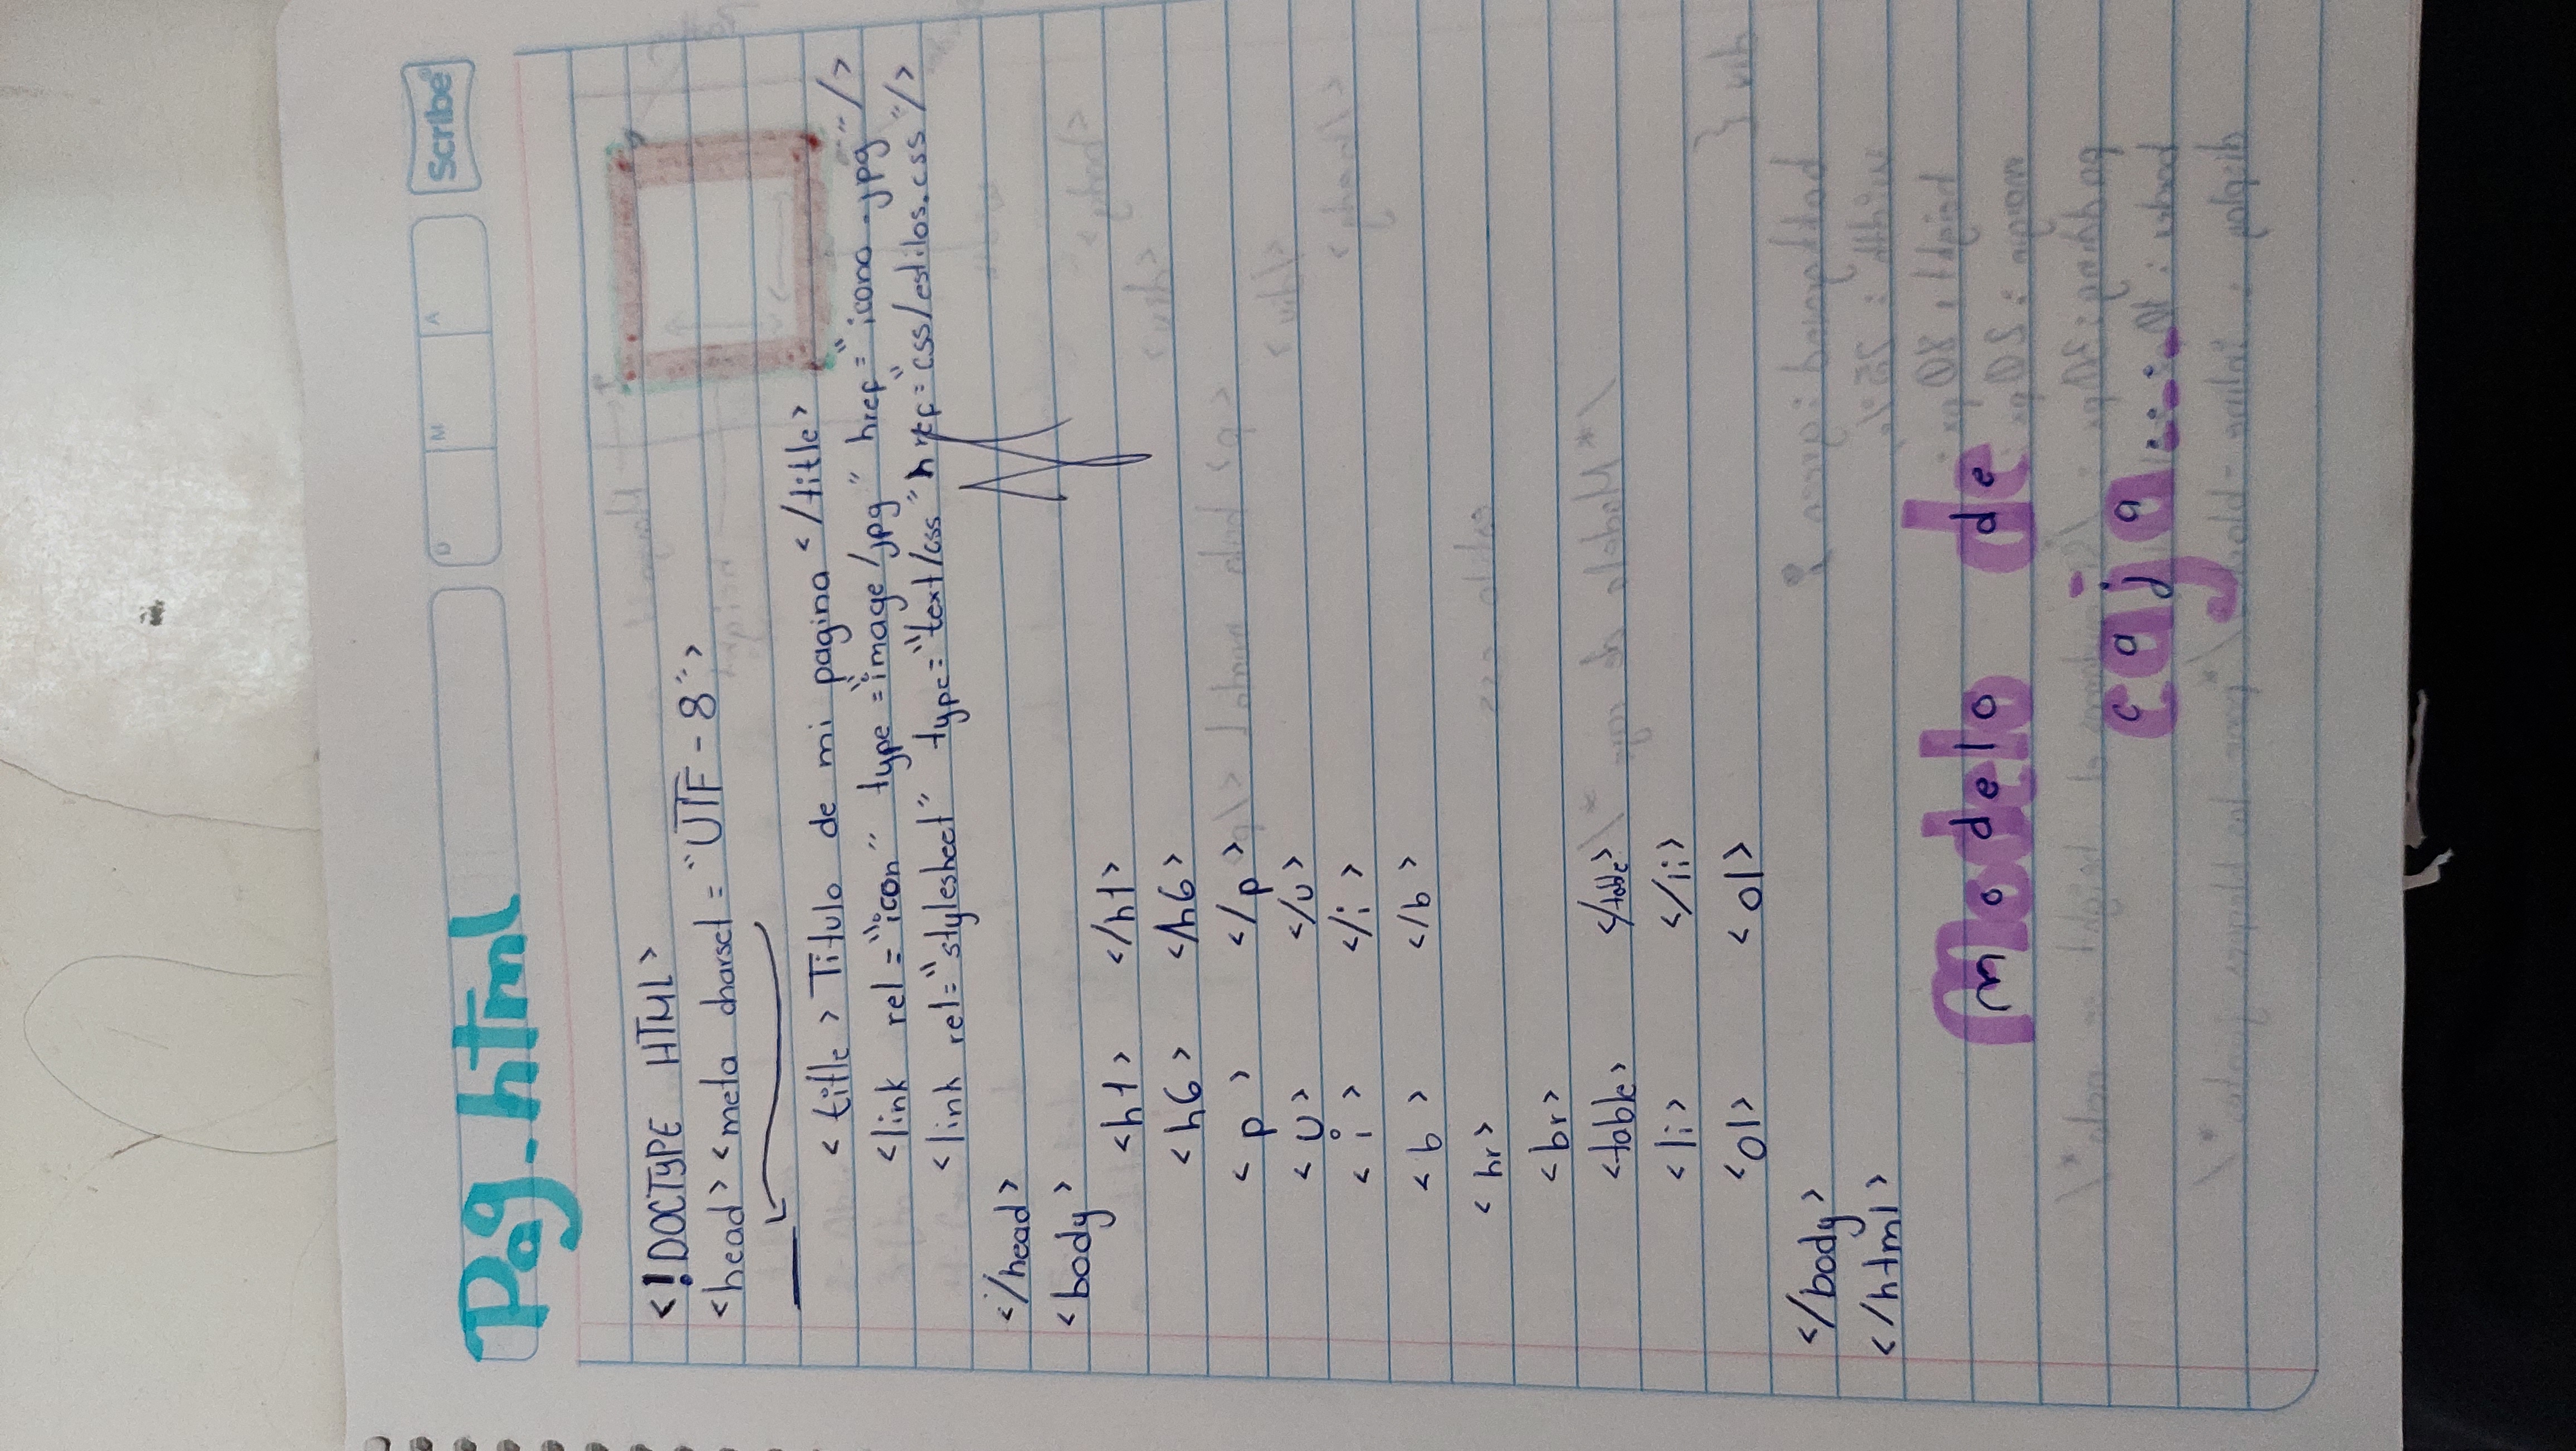 Scribe
D M A
Pag.html
<!DOCTYPE HTML>
<head> <meta charset = "UTF-8">
<title> Titulo de mi pagina </title>
<link rel="icon" type="image/jpg" href="icono.jpg"/>
<link rel="stylesheet" type="text/css" href="css/estilos.css"/>
</head>
<body>
<h1> </h1>
<h6> </h6>
<p> </p>
<u> </u>
<i> </i>
<b> </b>
<hr>
<br>
<table> </table>
<li> </li>
<ol> <ol>
</body>
</html>
Modelo de
caja...